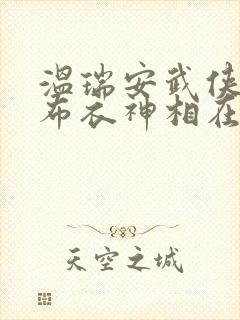 温瑞安武侠
布衣神相在
天空之城